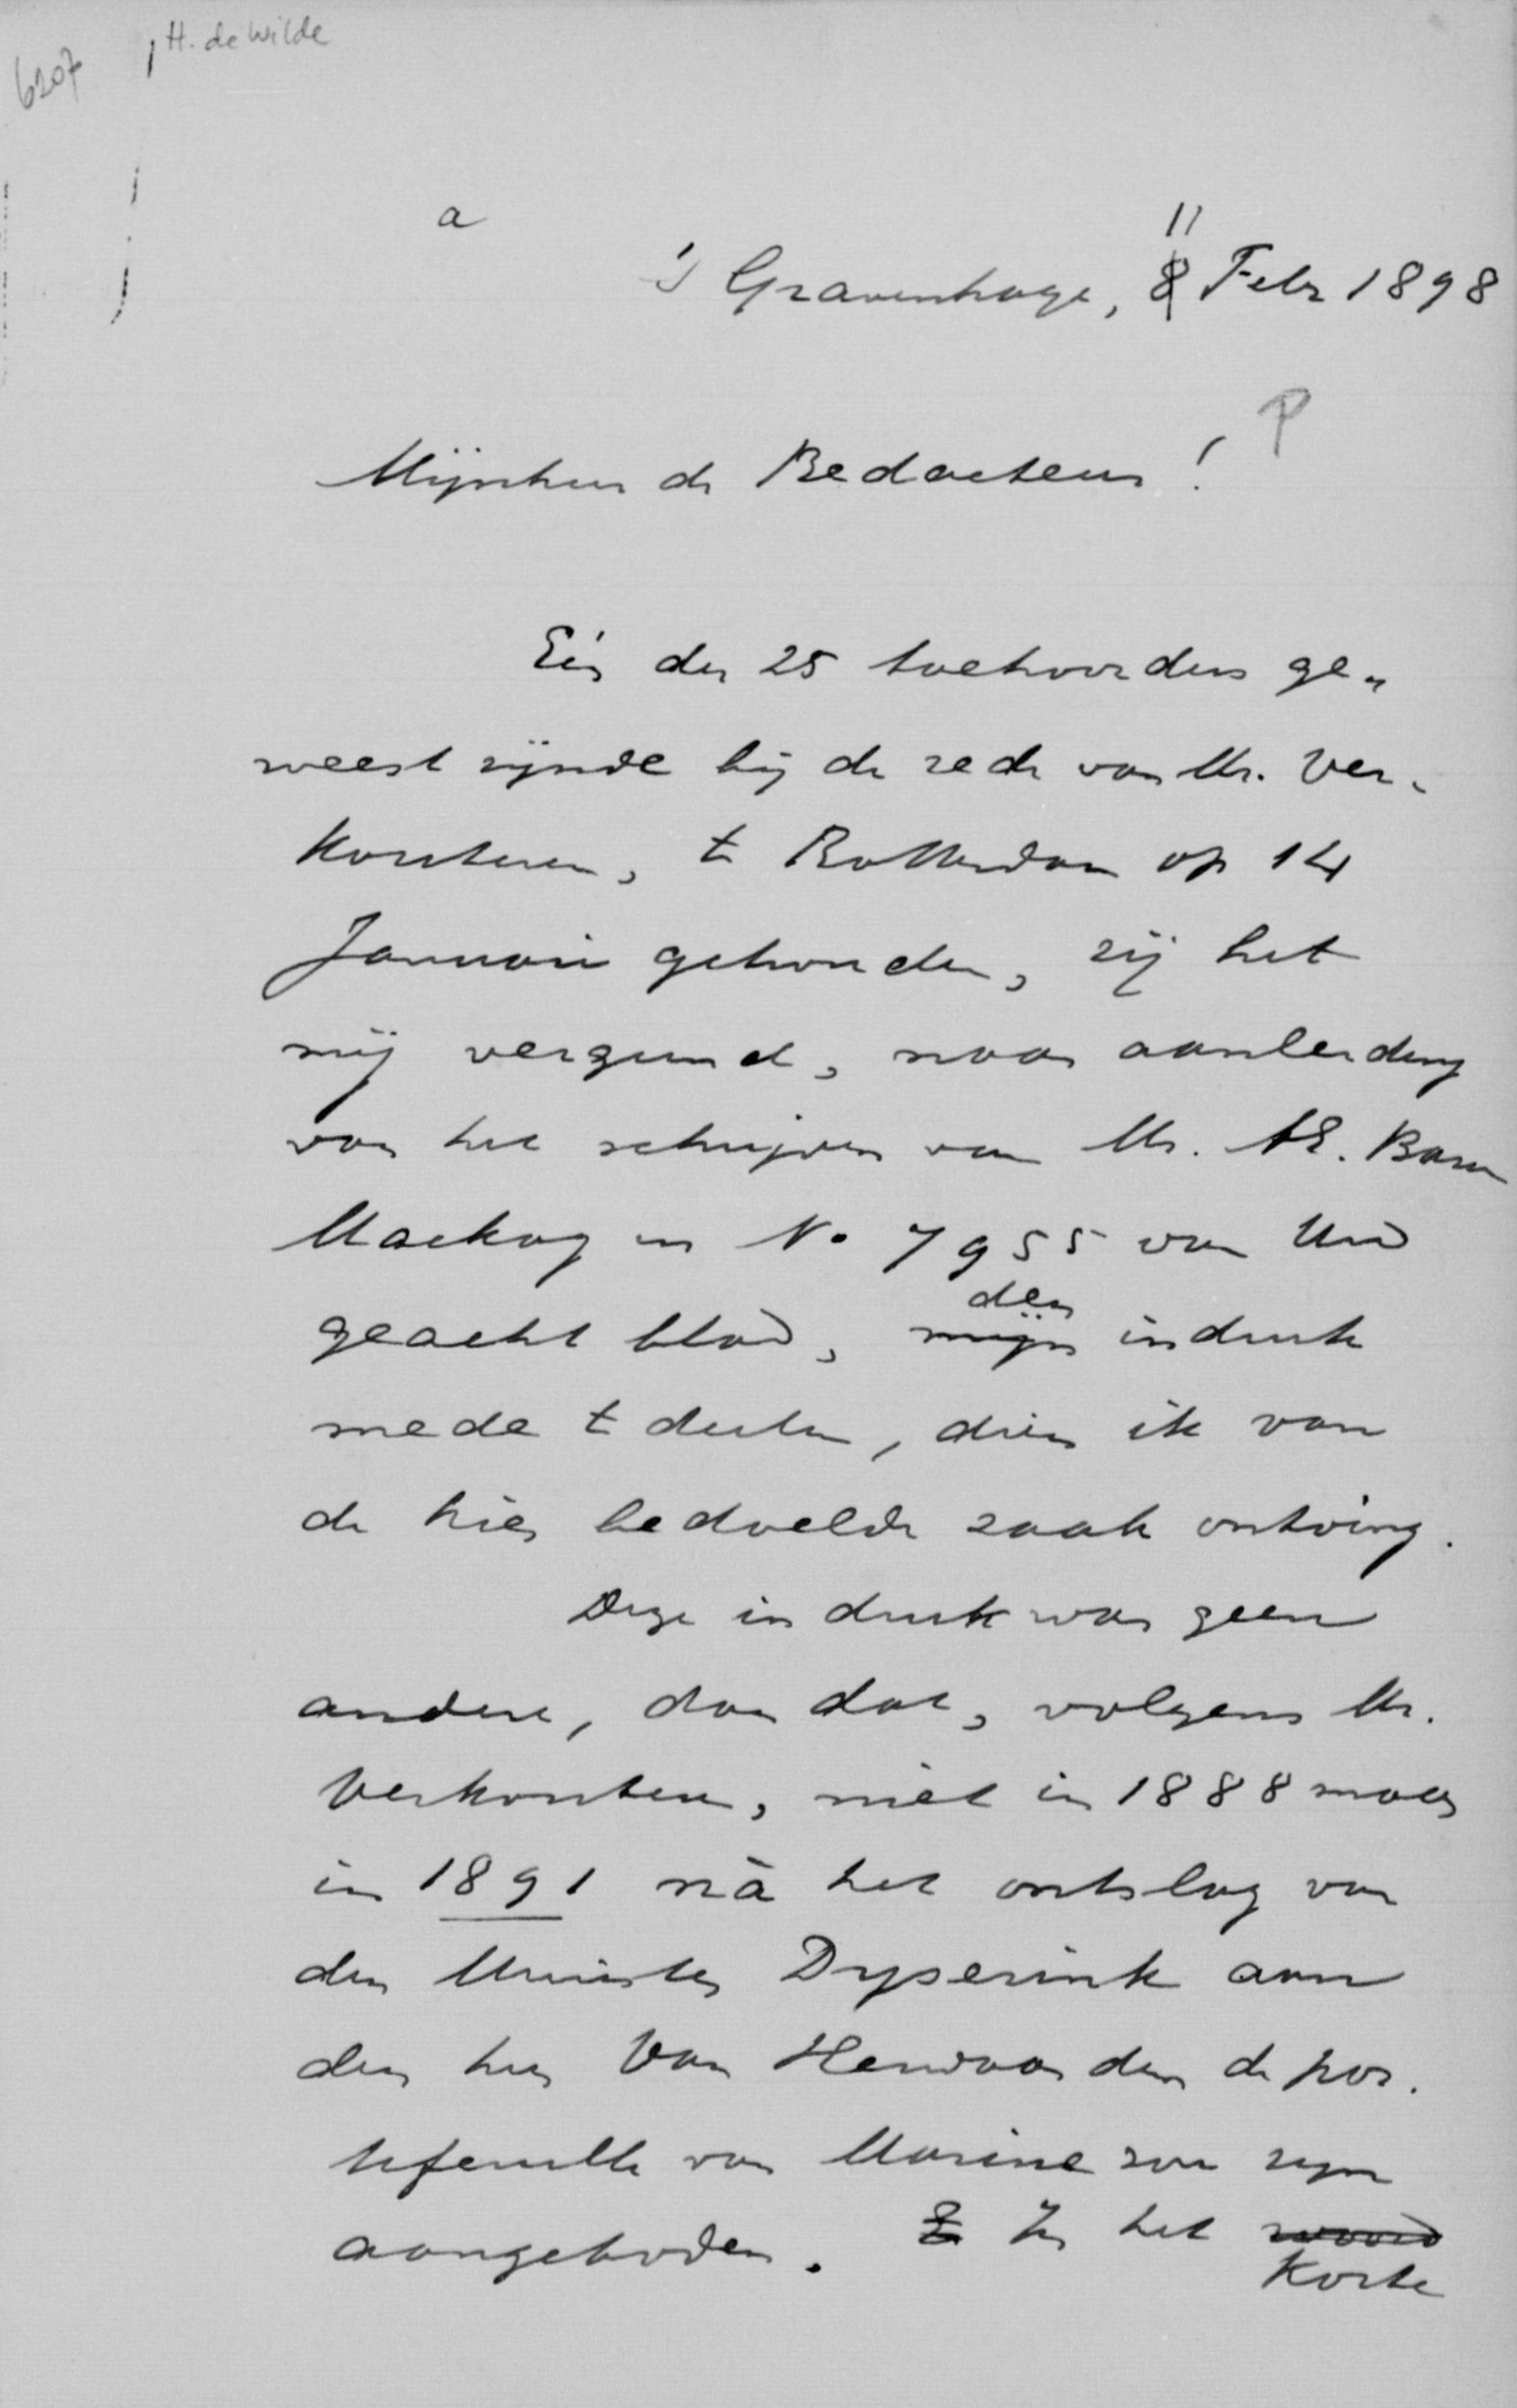 6207
H. de Wilde
a
11
's Gravenhage, 8 Febr 1898
P
Mijnheer de Redacteur!
Eén der 25 toehoorders ge-
weest zijnde bij de rede van Mr. Ver-
kouteren, te Rotterdam op 14
Januari gehouden, zij het
mij vergund, naar aanleiding
van het schrijven van Mr. Æ. Baron
Mackay in No 7955 van Uw
den
geacht blad, mijn indruk
mede te deelen, dien ik van
de hier bedoelde zaak ontving.
Deze indruk was geen
andere, dan dat, volgens Mr.
Verkouteren, niet in 1888 maar
in 1891 nà het ontslag van
den Minister Dyserink aan
den heer Van Herwaarden de por-
tefeuille van Marine zou zijn
aangeboden. In het woord
Korte